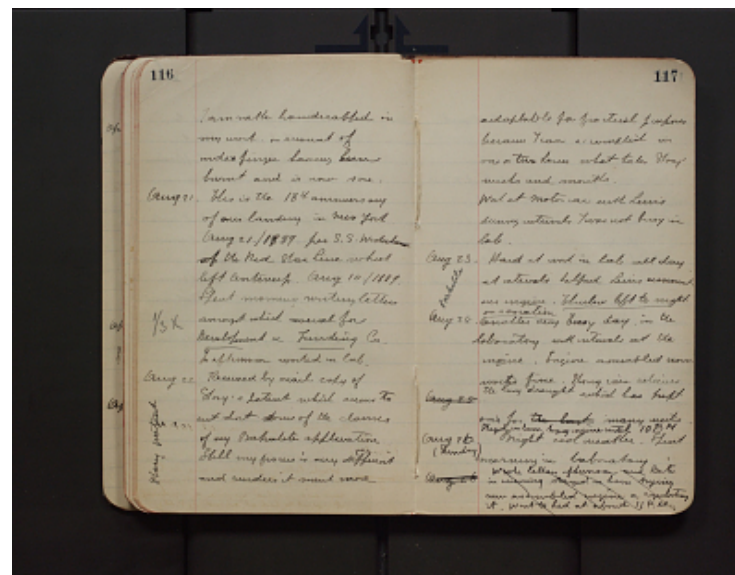 116
I am rather handicapped in
my work on account of
index finger having been
burnt and is now sore.
Aug 21. This is the 18th anniversary
of our landing in New York
Aug 21/1889 per S.S.
of the Red Star Line which
left Antwerp. Aug 10/1889.
Spent morning writing letters
amongst which several for
Development & Funding Co.
Afternoon worked in lab.
Aug 22. Received by mail copy of
Story's patent which seems to
out some of the claims
of my Bakelite application
Still my process is very different
and renders it much more
117
adaptable for practical purposes
because I can accomplish in
one or two hours what takes Story
weeks and months.
Was at Motor car with Lewis
during intervals I was not busy in
lab.
Aug 23. Hard at work in lab all day
at intervals helped Lewis
our engine. left to night
on vacation
Aug 24. Another very busy day in the
laboratory with intervals at the
engine. Engine assembled now
works fine.
the long drought which has kept
on for the last many weeks.
until 10 PM
Night cool weather. Spent
(Sunday)
morning in laboratory
Wrote letters afternoon and late
in evening
our assembled engine
it. Went to bed at about 11 P.M.